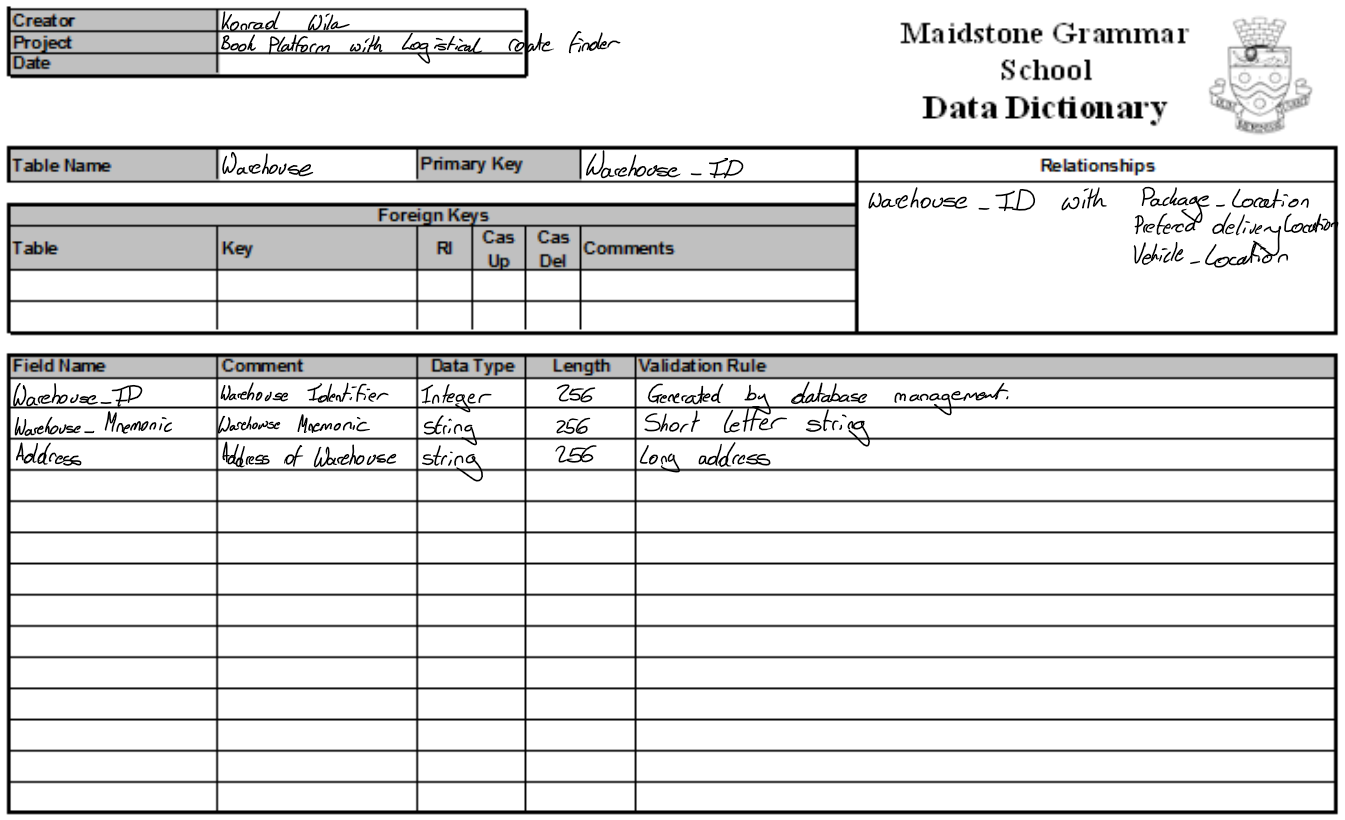 Creator Konrad Wila
Project Book Platform with Logistical route finder
Date
Maidstone Grammar
School
Data Dictionary
Table Name Warehouse Primary Key Warehouse_ID
Relationships
Warehouse_ID with Package_Location
Prefered delivery Location
Vehicle_Location
Foreign Keys
Table Key RI Cas Up Cas Del Comments
Field Name Comment Data Type Length Validation Rule
Warehouse_ID Warehouse Identifier Integer 256 Generated by database management.
Warehouse_Mnemonic Warehouse Mnemonic string 256 Short letter string
Address Address of Warehouse string 256 Long address